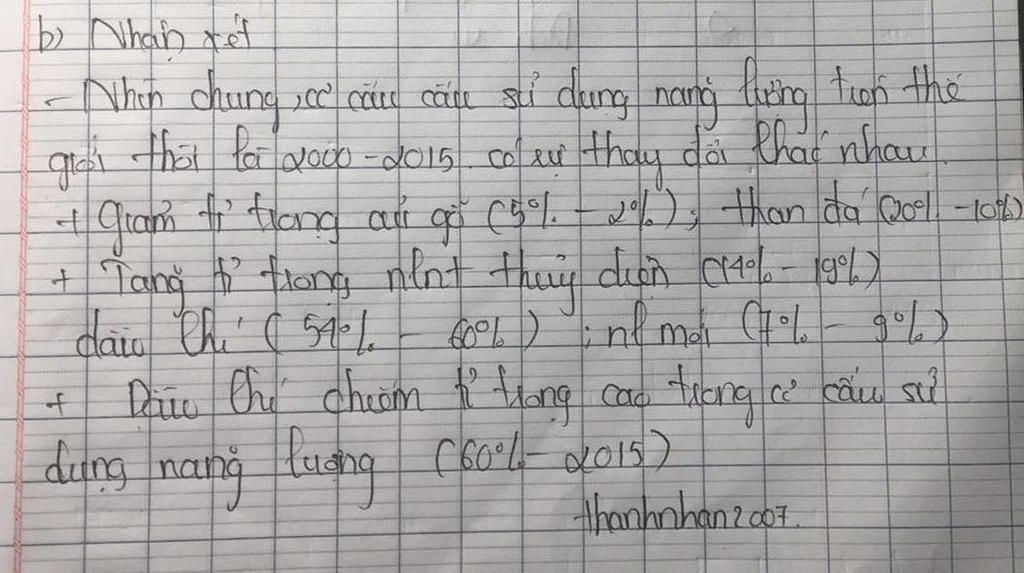 b) Nhận xét
- Nhìn chung, cơ cấu cấu sử dụng năng lượng trên thế
giới thời kì 2000-2015 có sự thay đổi khác nhau.
+ Giảm tỉ trọng củi gỗ (5% - 2%); than đá (20% -10%)
+ Tăng tỉ trọng nlnt thuỷ điện (14% - 19%)
dầu khí (54% - 60%) ; nl mới (7% - 9%)
+ Dầu khí chiếm tỉ trọng cao trong cơ cấu sử
dụng năng lượng (60% - 2015)
thanhnhan2007.